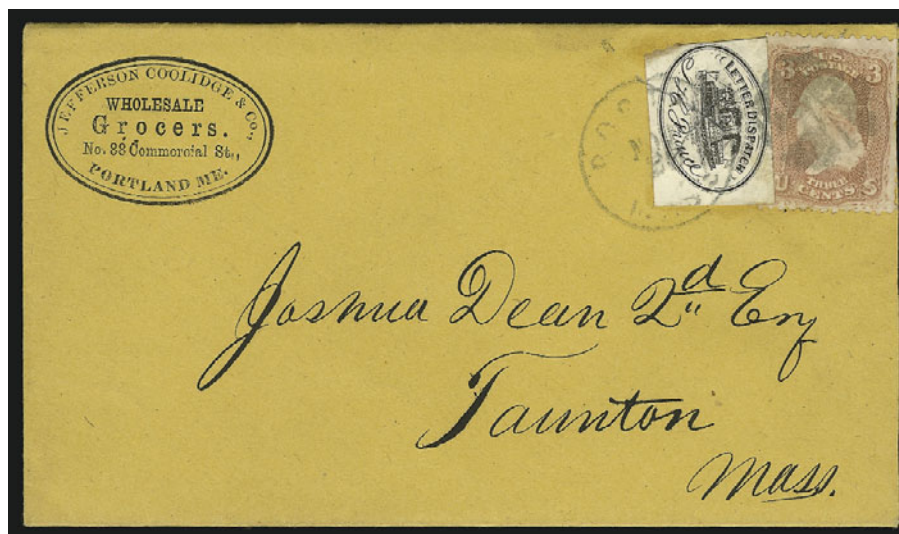 JEFFERSON COOLIDGE & Co.,
WHOLESALE
Grocers.
No. 88 Commercial St.,
PORTLAND ME.
LETTER DISPATCH
Prince
U.S.
POSTAGE
3 3
U THREE S
CENTS
Joshua Dean 2d Esq
Taunton
Mass.